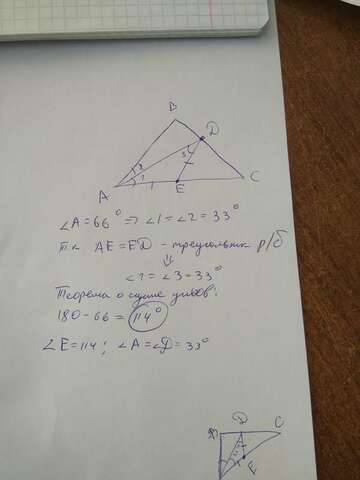 B
D
3
2
1
A
E
C
∠A=66° ⇒ ∠1=∠2=33°
т.к AE=ED - треугольник р/б
⇓
∠1=∠3=33°
Теорема о сумме углов:
180-66=114°
∠E=114; ∠A=∠D=33°
D
C
E